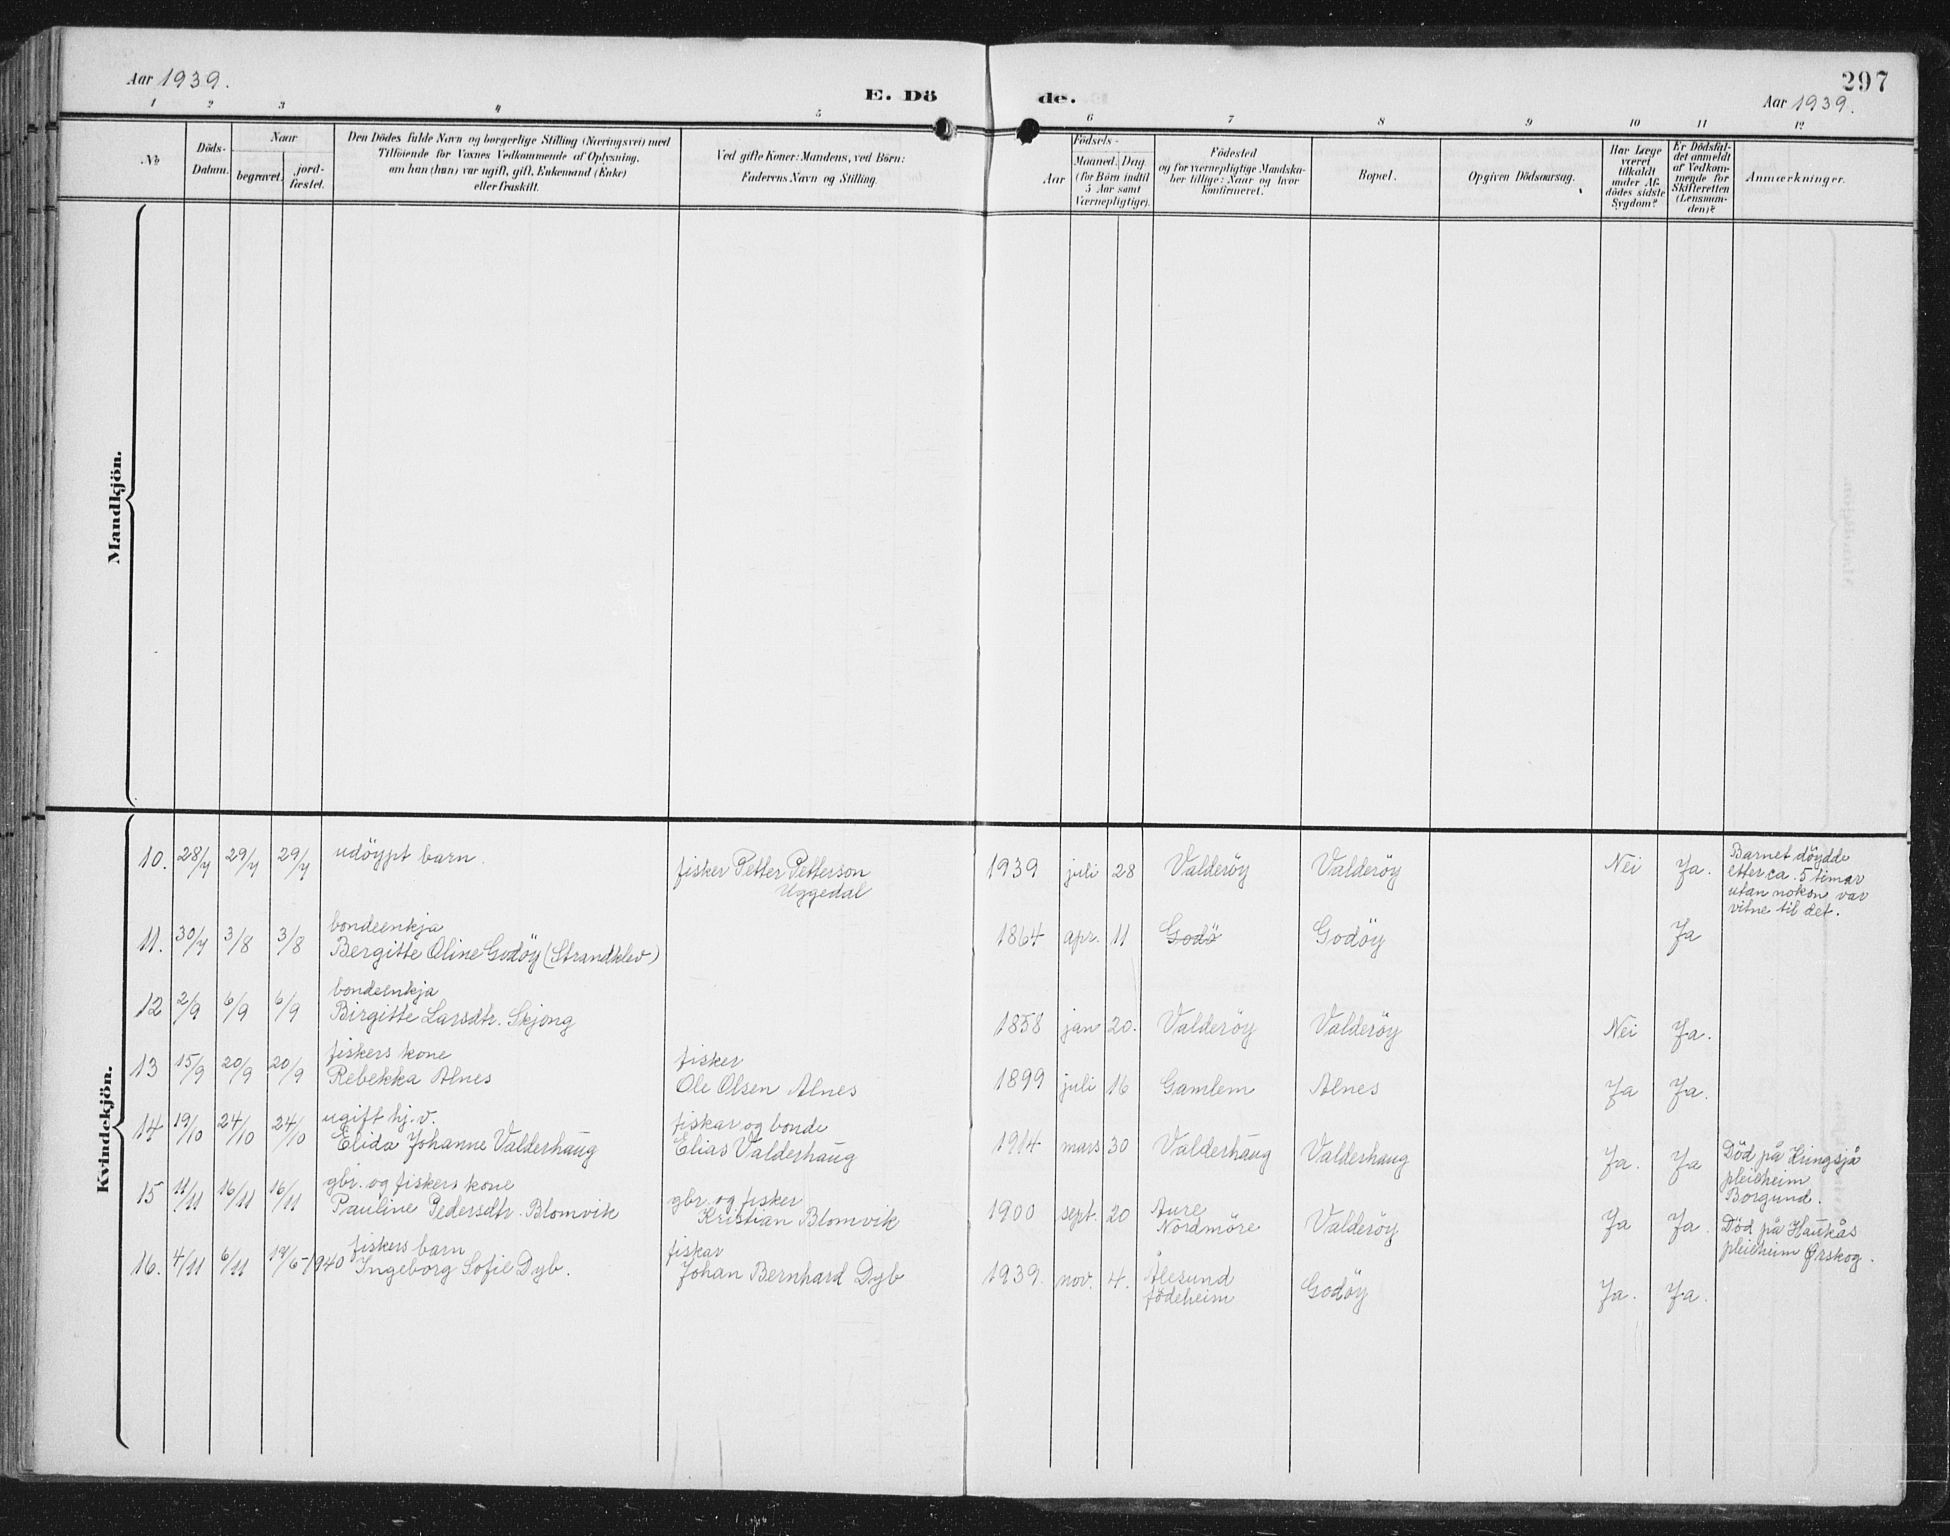 Aar 1939.
E. Dö
de.
297
Aar 1939.
1 2 3 4 5 6 7 8 9 10 11 12
No
Döds-
Datum.
Naar
begravet.
jord-
fæstet.
Den Dödes fulde Navn og borgerlige Stilling (Næringsvei) med
Tilföiende for Voxnes Vedkommende af Oplysning,
om han (hun) var ugift, gift, Enkemand (Enke)
eller fraskilt.
Ved gifte Koner: Mandens, ved Börn:
Faderens Navn og Stilling.
Födsels-
Aar
Maaned. Dag.
(for Börn indtil
5 Aar samt
Værnepligtige).
Födested
og for værnepligtige Mandska-
ber tillige: Naar og hvor
konfirmeret.
Bopæl.
Opgiven Dödsaarsag.
Har Læge
været
tilkaldt
under Af-
dödes sidste
Sygdom?
Er Dödsfal-
det anmeldt
af Vedkom-
mende for
Skifteretten
(Lensman-
den)?
Anmærkninger.
Mandkjön.
Kvindekjön.
10. 28/7 29/7 29/7 udöypt barn. fisker Petter Petterson 1939 juli 28 Valderöy Valderöy Nei Ja. Barnet döydde
Uggedal etter ca. 5 timar
utan nokon var
vitne til det.
bondeenkja
11. 30/7 3/8 3/8 Bergitte Oline Godöy (Strandklev) 1864 apr. 11 Godö Godöy Ja
bondeenkja
12 2/9 6/9 6/9 Birgitte Larsdtr. Skjong 1858 jan 20. Valderöy Valderöy Nei Ja.
fiskers kone fisker
13 15/9 20/9 20/9 Rebekka Alnes Ole Olsen Alnes 1899 juli 16 Gamlem Alnes Ja Ja.
ugift hj. v. fiskar og bonde
14 19/10 24/10 24/10 Elida Johanne Valderhaug Elias Valderhaug 1914 mars 30 Valderhaug Valderhaug Ja. Ja Död på Kringsjå
pleieheim
Borgund.
gbr. og fiskers kone gbr. og fisker
15 11/11 16/11 16/11 Pauline Pedersdtr. Blomvik Kristian Blomvik 1900 sept. 20 Aure Valderöy Ja Ja. Död på Haukås
Nordmöre pleieheim Ørskog.
fiskers barn fiskar
16. 4/11 6/11 /6-1940 Ingeborg Sofie Dyb. Johan Bernhard Dyb 1939. nov. 4. Ålesund Godöy Ja. Ja.
födeheim